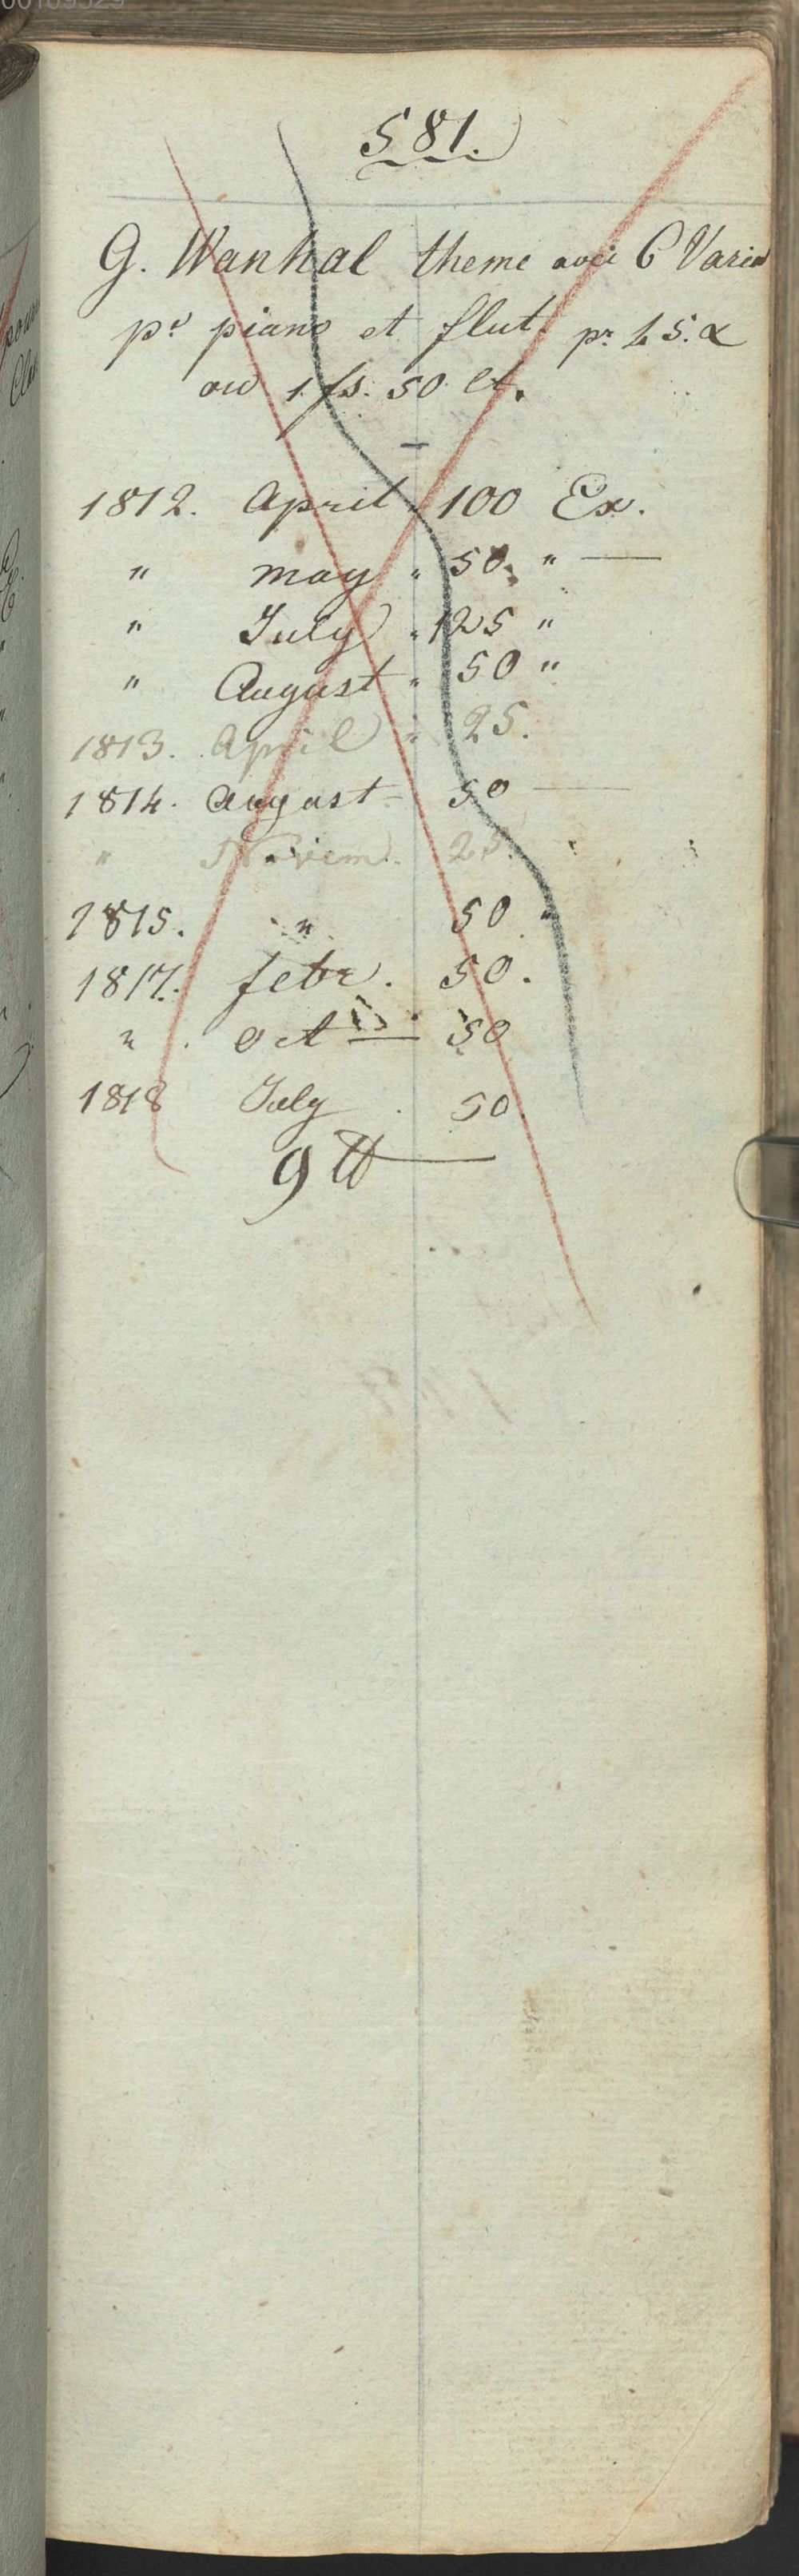 581.
G. Wanhal theme avec 6 Varia
pr piano et flut. pr 45. x
ou 1 fs. 50 Ct.
1812. April 100 Ex.
" may " 50. "
" July " 125 "
" August " 50 "
1813. April " 25.
1814. August 50
" Novem. 25.
1815. " 50 "
1817. febr. 50.
" oct 50
1818 July 50.
9 tt